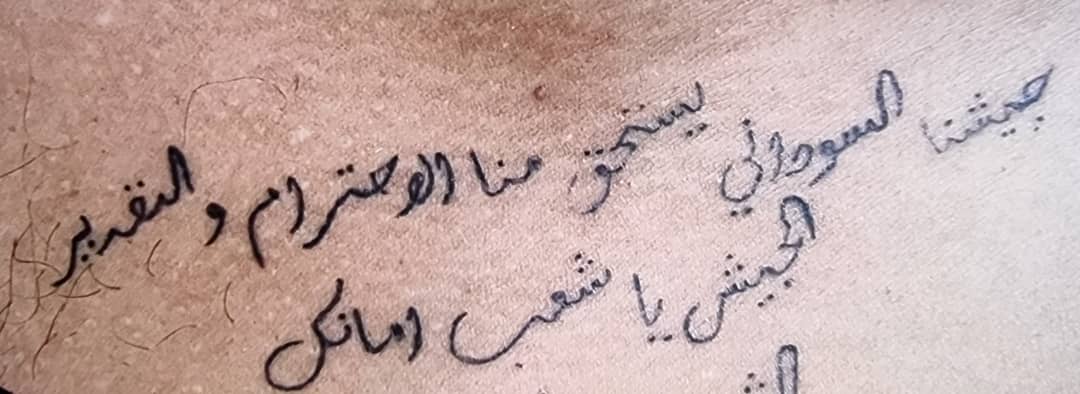 جيشنا السوداني يستحق منا الاحترام والتقدير
الجيش يا شعب امانكل